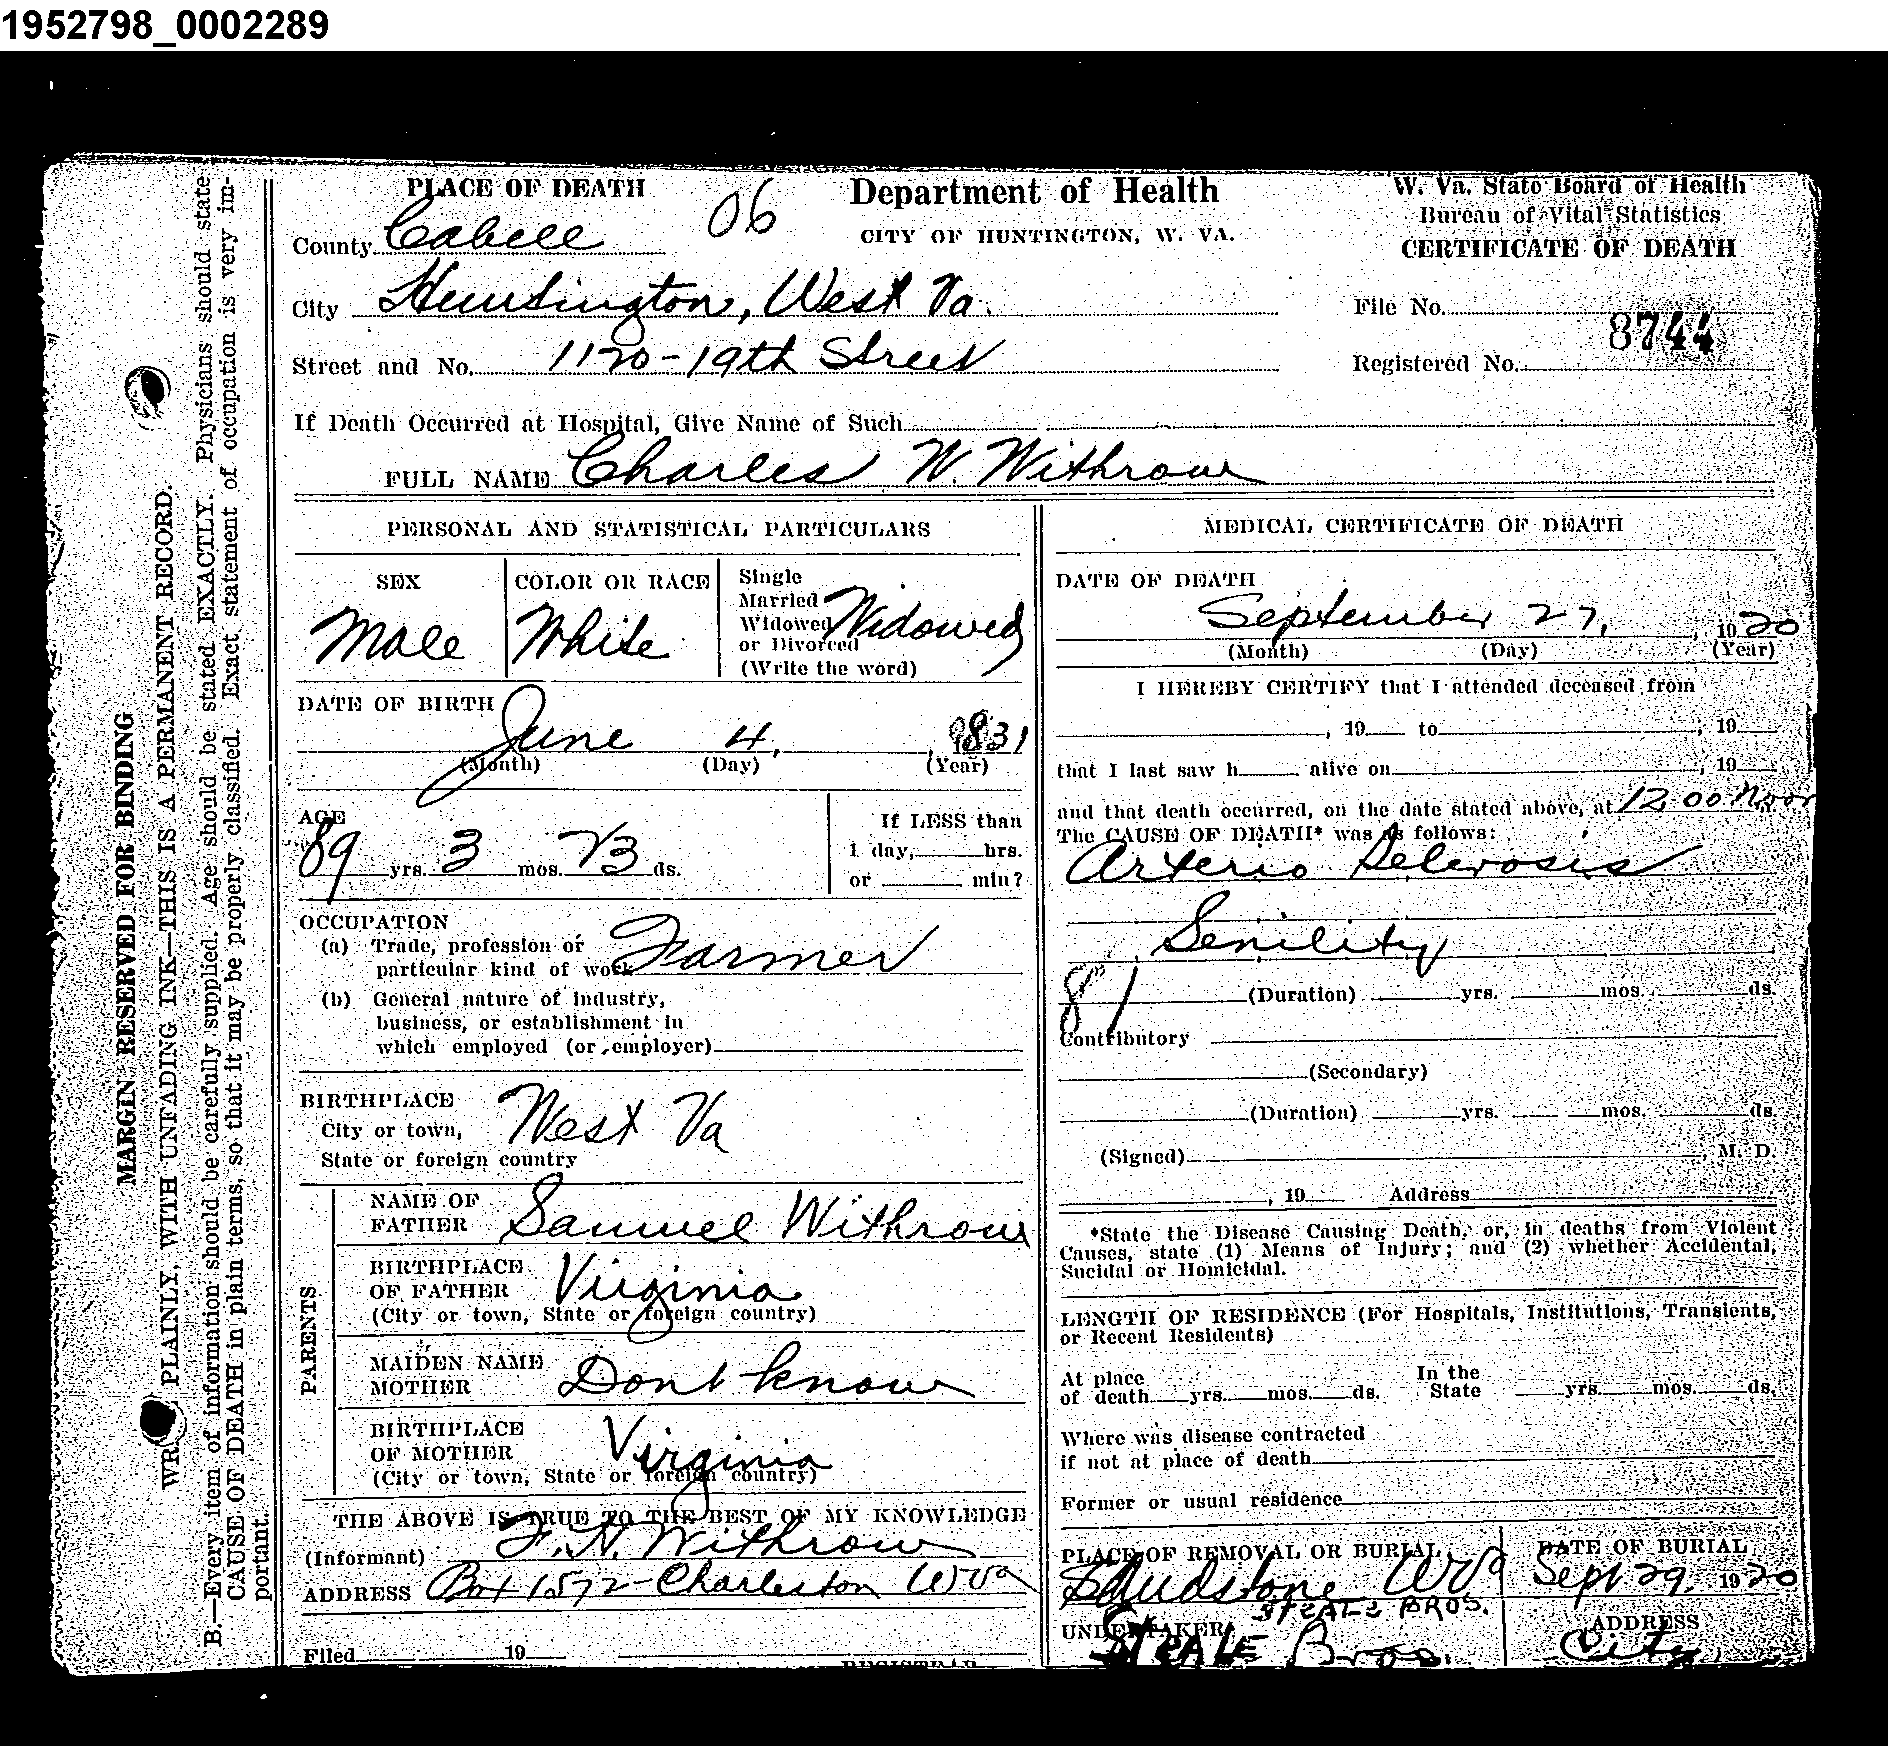 1952798_0002289
PLACE OF DEATH
County Cabell 06
Department of Health
CITY OF HUNTINGTON, W. VA.
W. Va. State Board of Health
Bureau of Vital Statistics
CERTIFICATE OF DEATH
City Huntington, West Va.
File No.
8744
Street and No. 1120-19th Street
Registered No.
If Death Occurred at Hospital, Give Name of Such
FULL NAME Charles W. Withrow
PERSONAL AND STATISTICAL PARTICULARS
SEX
Male
COLOR OR RACE
White
Single
Married
Widowed
or Divorced
(Write the word)
Widowed
DATE OF BIRTH
June 4, 1831
(Month) (Day) (Year)
AGE
89 yrs. 3 mos. 23 ds.
If LESS than
1 day, hrs.
or min?
OCCUPATION
(a) Trade, profession or
particular kind of work Farmer
(b) General nature of industry,
business, or establishment in
which employed (or employer)
BIRTHPLACE
City or town, West Va
State or foreign country
PARENTS
NAME OF
FATHER Samuel Withrow
BIRTHPLACE
OF FATHER Virginia
(City or town, State or foreign country)
MAIDEN NAME
MOTHER Dont know
BIRTHPLACE
OF MOTHER Virginia
(City or town, State or foreign country)
THE ABOVE IS TRUE TO THE BEST OF MY KNOWLEDGE
(Informant) F. H. Withrow
ADDRESS Box 1572-Charleston WVa
Filed 19
REGISTRAR
MEDICAL CERTIFICATE OF DEATH
DATE OF DEATH
September 27, 1920
(Month) (Day) (Year)
I HEREBY CERTIFY that I attended deceased from
, 19 to , 19
that I last saw h alive on , 19
and that death occurred, on the date stated above, at 12 00 Noon
The CAUSE OF DEATH* was as follows:
Arterio Sclerosis
Senility
81
(Duration) yrs. mos. ds.
Contributory
(Secondary)
(Duration) yrs. mos. ds.
(Signed) , M. D.
, 19 Address
*State the Disease Causing Death, or, in deaths from Violent
Causes, state (1) Means of Injury; and (2) whether Accidental,
Sucidal or Homicidal.
LENGTH OF RESIDENCE (For Hospitals, Institutions, Transients,
or Recent Residents)
At place
of death yrs. mos. ds.
In the
State yrs. mos. ds.
Where was disease contracted
if not at place of death
Former or usual residence
PLACE OF REMOVAL OR BURIAL
Sandstone WVa
DATE OF BURIAL
Sept 29, 1920
UNDERTAKER
STEALE BROS.
STEALE Bros.
ADDRESS
City
MARGIN RESERVED FOR BINDING
PLAINLY, WITH UNFADING INK—THIS IS A PERMANENT RECORD.
B.—Every item of information should be carefully supplied. Age should be stated EXACTLY. Physicians should state
CAUSE OF DEATH in plain terms, so that it may be properly classified. Exact statement of occupation is very im-
portant.